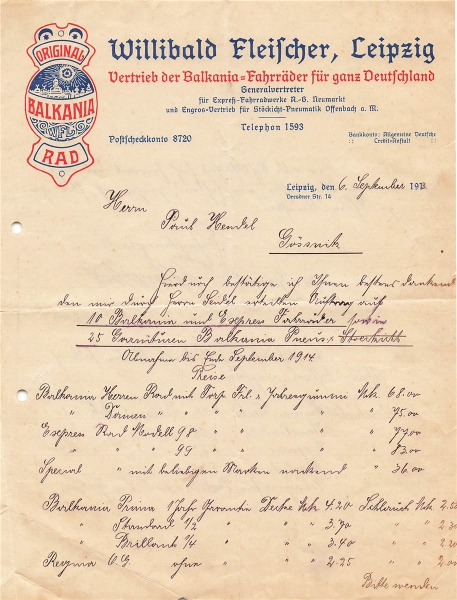 ORIGINAL
BALKANIA
W.F.L.
RAD
Willibald Fleischer, Leipzig
Vertrieb der Balkania=Fahrräder für ganz Deutschland
Generalvertreter
für Expreß-Fahrradwerke A.-G. Neumarkt
und Engros-Vertrieb für Stöckicht-Pneumatik Offenbach a. M.
Postscheckkonto 8720
Telephon 1593
Bankkonto: Allgemeine Deutsche
:: Credit-Anstalt ::
Leipzig, den 6. September 1913
Dresdner Str. 14
Herrn
Paul Hendel
Gössnitz
Hierdurch bestätige ich Ihnen bestens dankend
den mir durch Herrn Seidel erteilten Auftrag auf
10 Balkania und Express Fahrräder sowie
25 Garnituren Balkania Pneus
Abnahme bis Ende September 1914.
Preise
Balkania Herren Rad mit Mk. 68.00
" Damen " " 75.00
Express Rad Modell 98 " 77.00
" " " 99 " 83.00
Special " mit beliebigen Marken " 36.00
Balkania Prima 1 Jahr Garantie Decke Mk. 4.20 Schlauch Mk. 2.50
" Standard 1/2 " " " 3.70 " " 2.30
" Brillant 1/4 " " " 3.40 " " 2.20
Regina O.G. ohne " " 2.25 " " 2.00
Bitte wenden